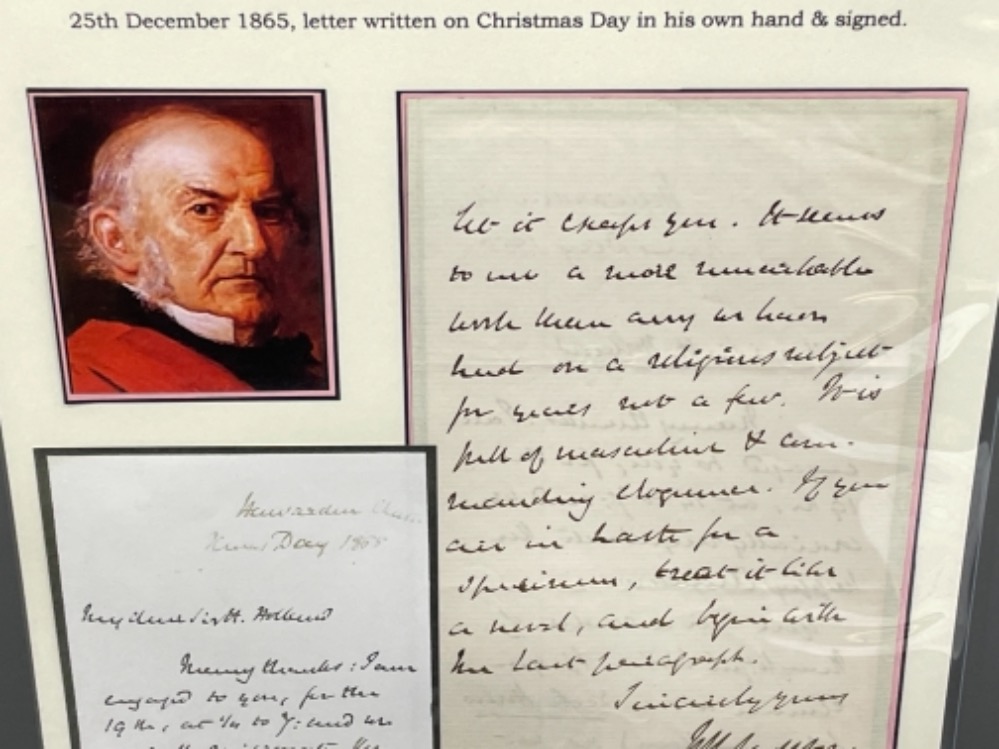 25th December 1865, letter written on Christmas Day in his own hand & signed.
let it escape you. It seems
to me a more remarkable
work than any we have
had on a religious subject
for years not a few. It is
full of masculine & com-
manding eloquence. If you
are in haste for a
specimen, treat it like
a novel, and begin with
the last paragraph.
Sincerely yours
Hawarden
Xmas Day 1865
My dear Sir H. Holland
Many thanks: I am
engaged to you, for the
19th, at 1/4 to 7: and we